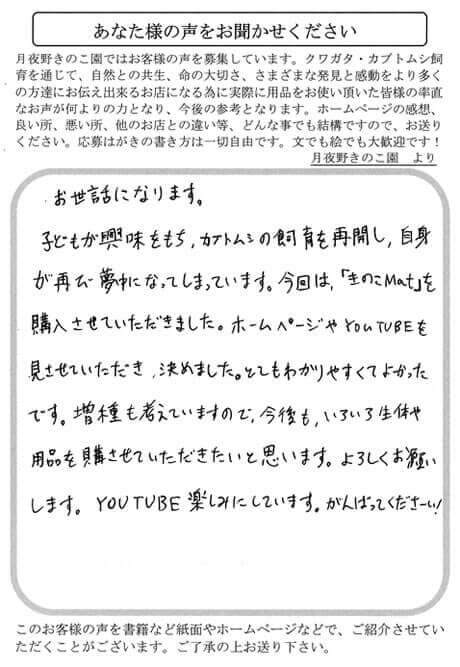 あなた様の声をお聞かせください
月夜野きのこ園ではお客様の声を募集しています。クワガタ・カブトムシ飼
育を通じて、自然との共生、命の大切さ、さまざまな発見と感動をより多く
の方達にお伝え出来るお店になる為に実際に用品をお使い頂いた皆様の率直
なお声が何よりの力となり、今後の参考となります。ホームページの感想、
良い所、悪い所、他のお店との違い等、どんな事でも結構ですので、お送り
ください。応募はがきの書き方は一切自由です。文でも絵でも大歓迎です！
月夜野きのこ園　より
お世話になります。
子どもが興味をもち、カブトムシの飼育を再開し、自身
が再び夢中になってしまっています。今回は、「きのこMat」を
購入させていただきました。ホームページやYOUTUBEを
見させていただき、決めました。とてもわかりやすくてよかった
です。増種も考えていますので、今後も、いろいろ生体や
用品を購させていただきたいと思います。よろしくお願い
します。YOUTUBE楽しみにしています。がんばってくださーい!
このお客様の声を書籍など紙面やホームページなどで、ご紹介させてい
ただくことがございます。ご了承の上お送り下さい。